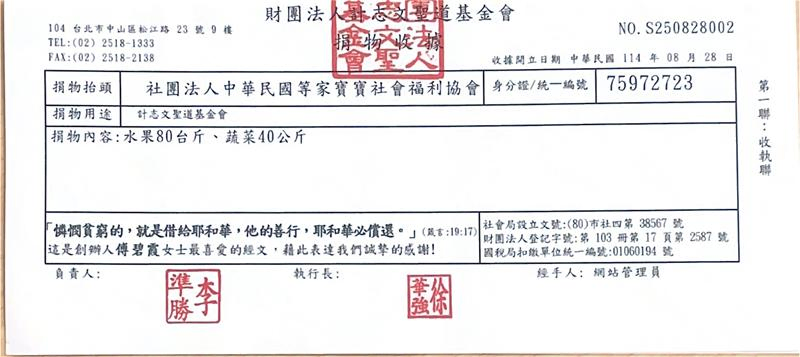 財團法人計志文聖道基金會
捐物收據
104 台北市中山區松江路 23 號 9 樓
TEL:(02) 2518-1333
FAX:(02) 2518-2138
NO. S250828002
收據開立日期 中華民國 114 年 08 月 28 日
捐物抬頭 社團法人中華民國等家寶寶社會福利協會 身分證/統一編號 75972723
捐物用途 計志文聖道基金會
捐物內容:水果80台斤、蔬菜40公斤
第一聯：收執聯
「憐憫貧窮的，就是借給耶和華，他的善行，耶和華必償還。」(箴言:19:17)
這是創辦人傅碧霞女士最喜愛的經文，藉此表達我們誠摯的感謝!
社會局設立文號:(80)市社四第 38567 號
財團法人登記字號:第 103 冊第 17 頁第 2587 號
國稅局扣繳單位統一編號:01060194 號
負責人: 執行長: 經手人: 網站管理員
李準勝
徐華強